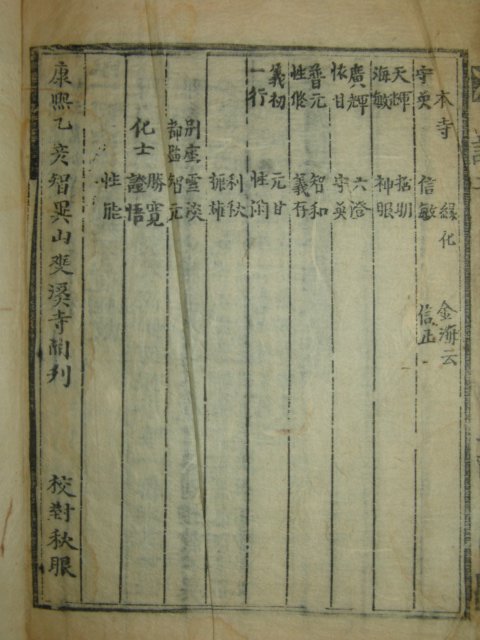 本寺 緣化 金海云
守英 信敏 信正
天輝
海敏 神眼
廣輝 六澄
依甘 守英
普元 智和
性修 義存
義初 元甘
一行
利秋
振雄
別座雲淡
都監智元
化士 勝寬
證悟
性能
康熙乙亥智異山雙溪寺開刊 校對秋眼